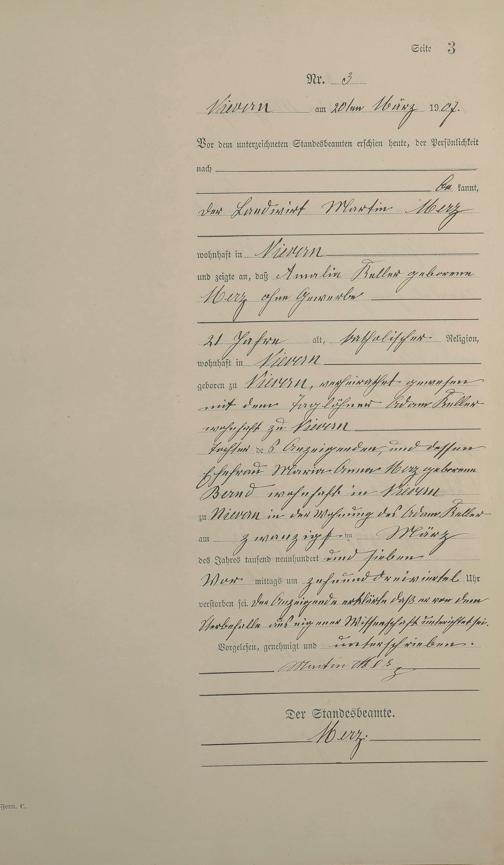 Seite 3
Nr. 3
Nievern am 20ten März 1907.
Vor dem unterzeichneten Standesbeamten erschien heute, der Persönlichkeit
nach
be kannt,
der Landwirt Martin Merz
wohnhaft in Nievern
und zeigte an, daß Amalia Keller geborene
Merz ohne Gewerbe
21 Jahre alt, katholischer Religion,
wohnhaft in Nievern
geboren zu Nievern, verheirathet gewesen
mit dem Taglöhner Adam Keller
wohnhaft zu Nievern
Tochter des Anzeigenden, und dessen
Ehefrau Maria Anna Merz geborene
Bernd wohnhaft in Nievern
zu Nievern in der Wohnung des Adam Keller
am zwanzigsten März
des Jahres tausend neunhundert und sieben
Vor mittags um zehnunddreiviertel Uhr
verstorben sei. Der Anzeigende erklärte daß er von dem
Sterbefalle aus eigener Wissenschaft unterrichtet sei.
Vorgelesen, genehmigt und unterschrieben.
Martin Merz
Der Standesbeamte.
Merz.
Form. C.